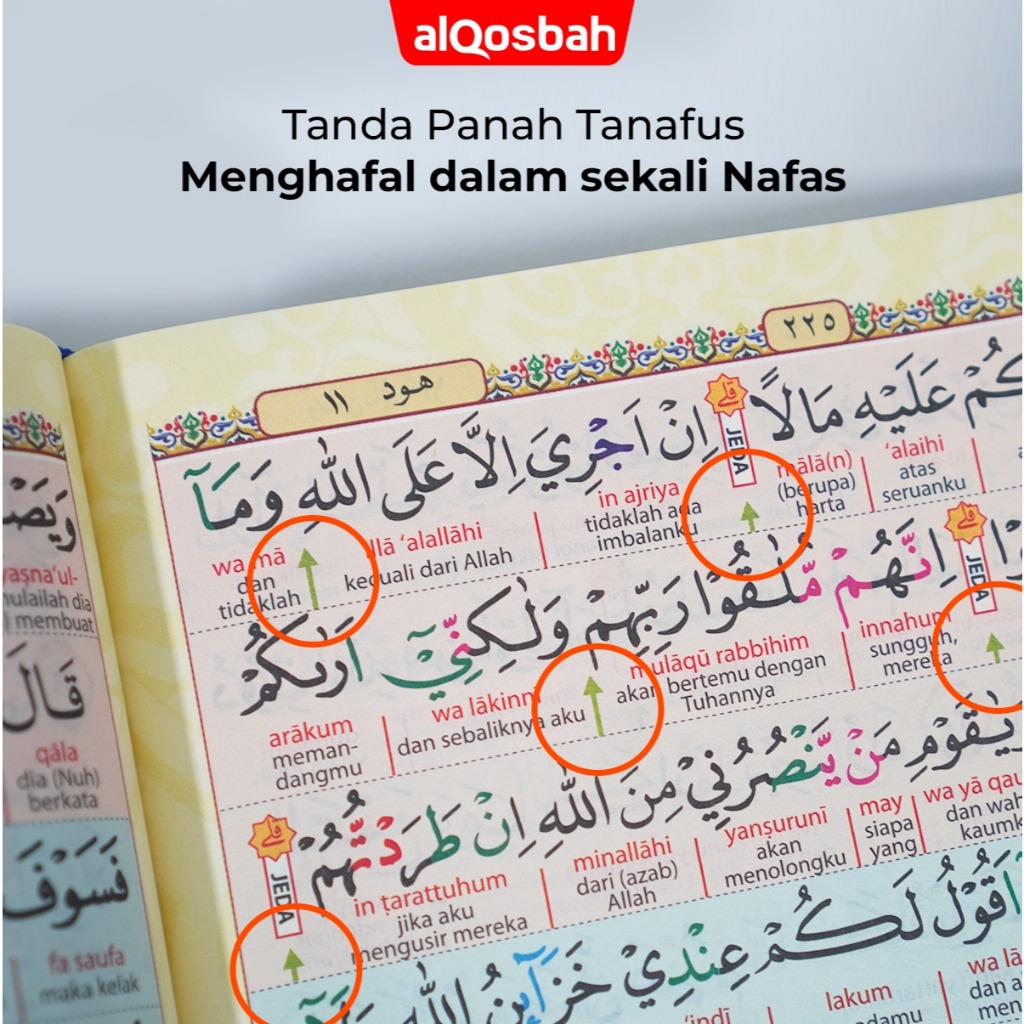 alQosbah
Tanda Panah Tanafus
Menghafal dalam sekali Nafas
٢٢٥
هود ١١
كُمْ عَلَيْهِ مَالًا ۗ اِنْ اَجْرِيَ اِلَّا عَلَى اللّٰهِ وَمَآ
قلے
JEDA
‘alaihi atas seruanku
mālā(n) (berupa) harta
in ajriya tidaklah ada imbalanku
‘alallāhi kecuali dari Allah
wa mā dan tidaklah
اِنَّهُمْ مُّلٰقُوْا رَبِّهِمْ وَلٰكِنِّيْٓ اَرٰىكُمْ
قلے
JEDA
innahum sungguh, mereka
mulāqū rabbihim akan bertemu dengan Tuhannya
wa lākinnī dan sebaliknya aku
arākum meman-dangmu
يٰقَوْمِ مَنْ يَّنْصُرُنِيْ مِنَ اللّٰهِ اِنْ طَرَدْتُّهُمْ
قلے
JEDA
wa yā qau
dan wah
kaumk
may siapa yang
yanṣurunī akan menolongku
minallāhi dari (azab) Allah
in ṭarattuhum jika aku mengusir mereka
اَقُوْلُ لَكُمْ عِنْدِيْ خَزَاۤىِٕنُ اللّٰهِ
wa lā
dan a
men
lakum
‘indī
وَيَصْ
yaṣna‘ul-
mulailah dia
membuat
قَالَ
qāla
dia (Nuh)
berkata
فَسَوْفَ
fa saufa
maka kelak